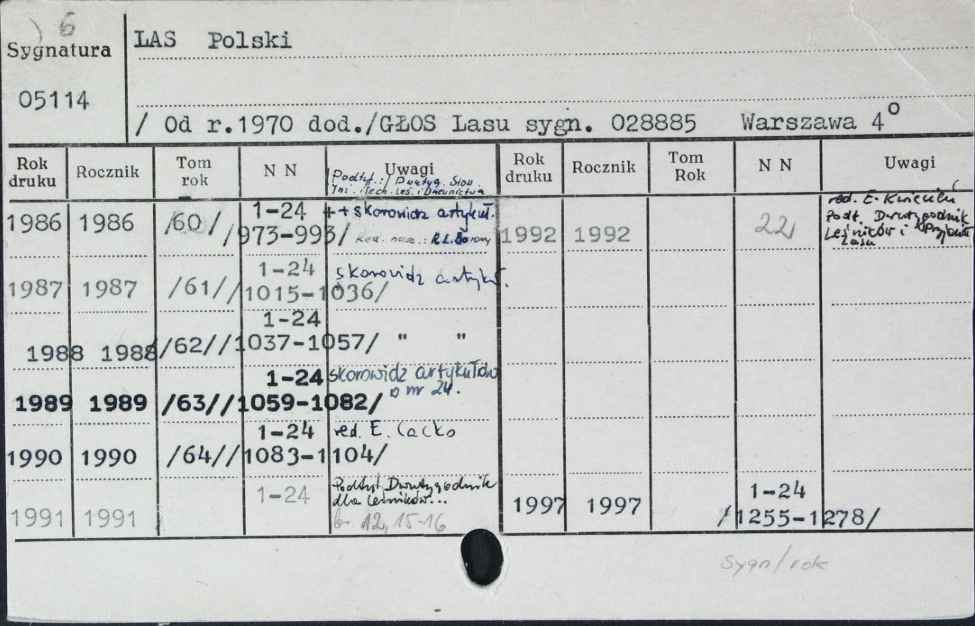 6
Sygnatura
LAS Polski
05114
/ Od r.1970 dod./GŁOS Lasu sygn. 028885 Warszawa 4°
Rok druku Rocznik Tom rok N N Uwagi
Podtyt.: Dwutyg. Stow.
Inż. i Tech. Leś. i Drzewnictwa
1986 1986 /60/ 1-24 ++skorowidz artykuł.
/973-993/ Red. nacz.:
1987 1987 /61/ 1-24 skorowidz artykuł.
/1015-1036/
1988 1988 /62/ 1-24
/1037-1057/ " "
1989 1989 /63/ 1-24 skorowidz artykułów
/1059-1082/ w nr 24.
1990 1990 /64/ 1-24 red. E. Cacko
/1083-1104/
1991 1991 1-24 Podtyt. Dwutygodnik
dla Leśników...
b. 12, 15-16
Rok druku Rocznik Tom Rok N N Uwagi
1992 1992 22 red. E.
Podt. Dwutygodnik
Leśników i
Lasu
1997 1997 1-24
/1255-1278/
Sygn/rok